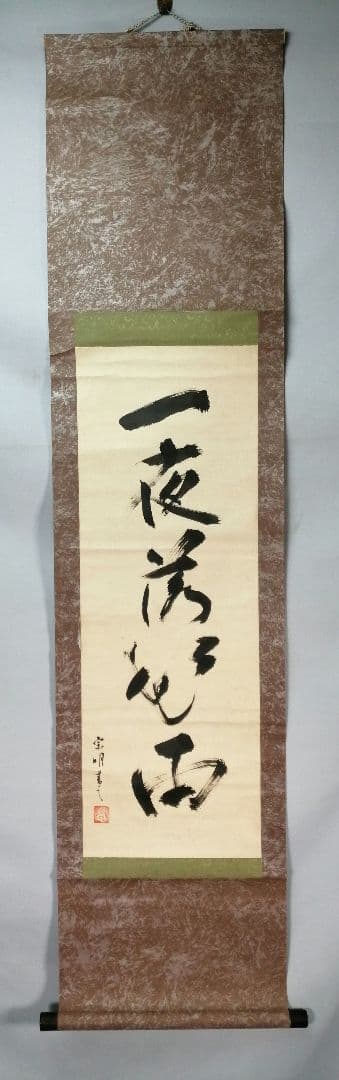 一夜落花雨
宗明書之